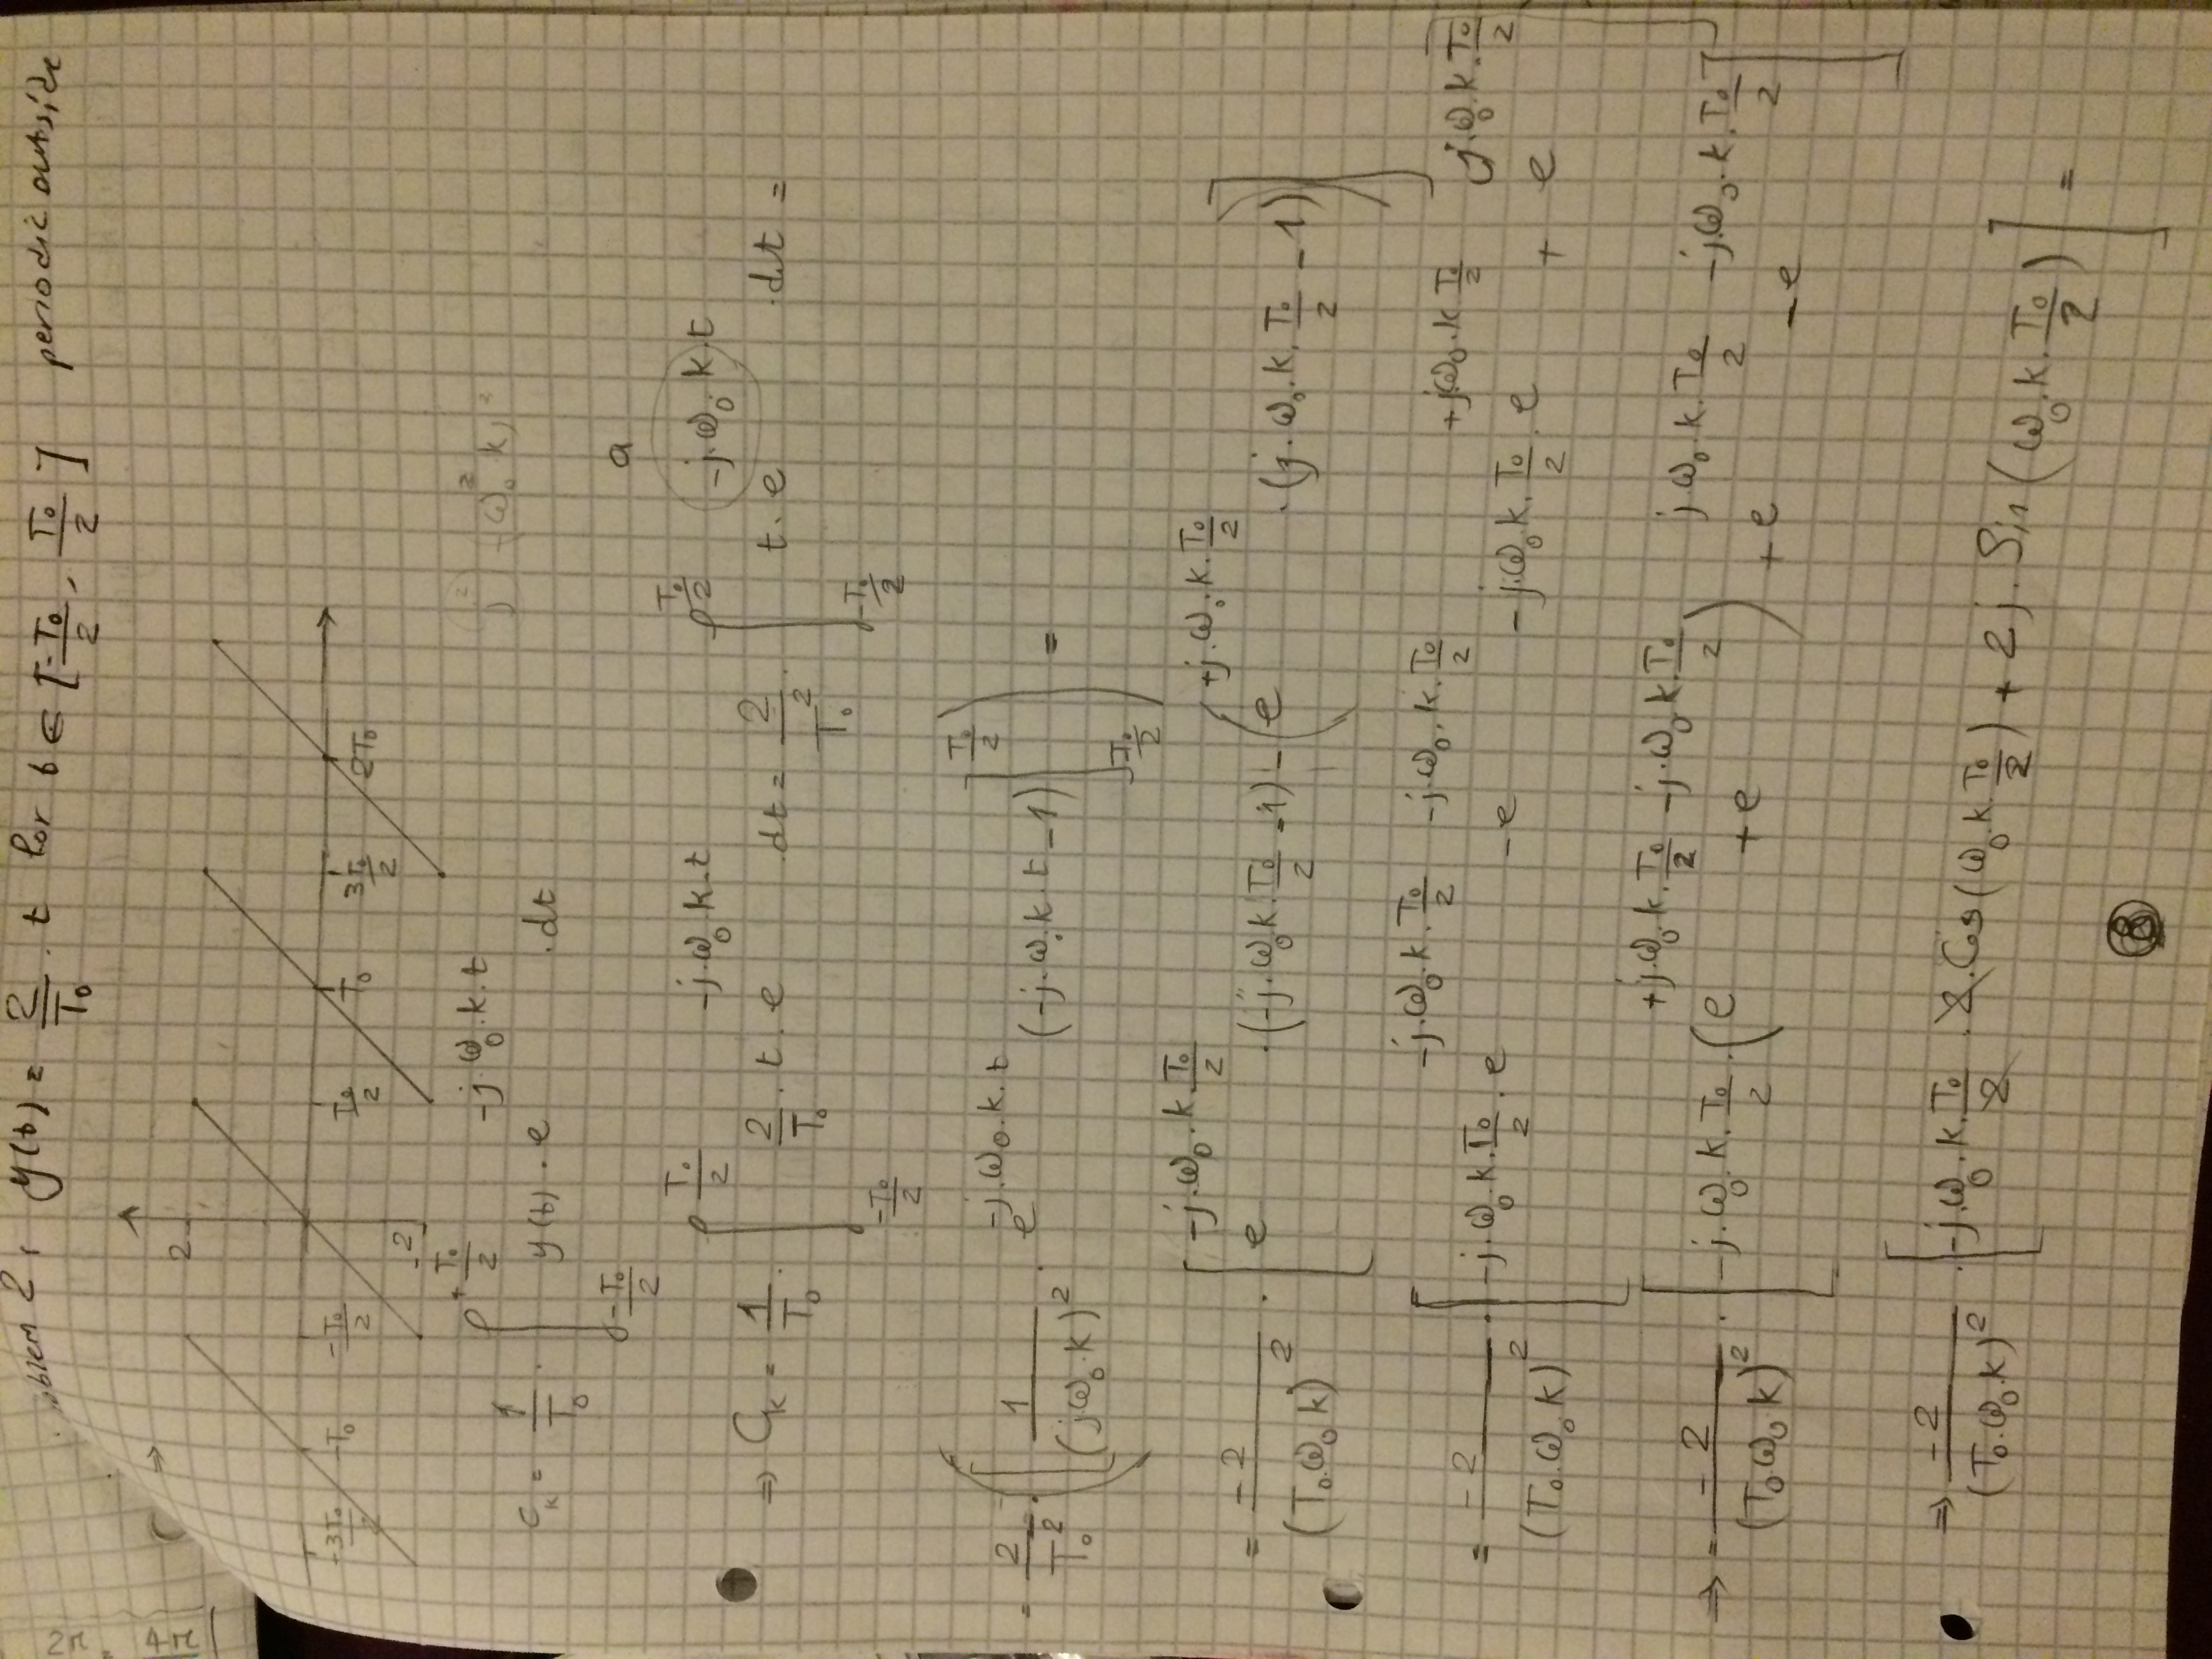 oblem 2, y(t) = 2/T₀ · t for t ∈ [-T₀/2, T₀/2] periodic outside
2π
4π
⇒
2
-3T₀/2 -T₀ -T₀/2 T₀/2 T₀ 3T₀/2 2T₀
-2
c_k = 1/T₀ · ∫_{-T₀/2}^{+T₀/2} y(t) · e^{-j·ω₀·k·t} · dt
a
⇒ C_k = 1/T₀ · ∫_{-T₀/2}^{T₀/2} 2/T₀ · t · e^{-j·ω₀·k·t} · dt = 2/T₀² · ∫_{-T₀/2}^{T₀/2} t · e^{-j·ω₀·k·t} · dt =
= 2/T₀² · ([1/(j·ω₀·k)² · e^{-j·ω₀·k·t} (-j·ω₀·k·t - 1)]_{-T₀/2}^{T₀/2}) =
= -2/(T₀·ω₀·k)² · [e^{-j·ω₀·k·T₀/2} · (-j·ω₀·k·T₀/2 - 1) - (e^{+j·ω₀·k·T₀/2} · (j·ω₀·k·T₀/2 - 1))]
= -2/(T₀·ω₀·k)² · [-j·ω₀·k·T₀/2 · e^{-j·ω₀·k·T₀/2} - e^{-j·ω₀·k·T₀/2} - j·ω₀·k·T₀/2 · e^{+j·ω₀·k·T₀/2} + e^{j·ω₀·k·T₀/2}]
⇒ = -2/(T₀·ω₀·k)² · [-j·ω₀·k·T₀/2 · (e^{+j·ω₀·k·T₀/2} + e^{-j·ω₀·k·T₀/2}) + e^{j·ω₀·k·T₀/2} - e^{-j·ω₀·k·T₀/2}]
⇒ -2/(T₀·ω₀·k)² · [-j·ω₀·k·T₀/2 · 2·Cos(ω₀·k·T₀/2) + 2j·Sin(ω₀·k·T₀/2)] =
8